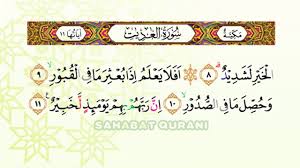 مكية سورة العديت اياتها ١١
الْخَيْرِ لَشَدِيْدٌ ۗ ٨ اَفَلَا يَعْلَمُ اِذَا بُعْثِرَ مَا فِى الْقُبُوْرِ ۙ ٩
وَحُصِّلَ مَا فِى الصُّدُوْرِ ۙ ١٠ اِنَّ رَبَّهُمْ بِهِمْ يَوْمَىِٕذٍ لَّخَبِيْرٌ ࣖ ١١
SAHABAT QURANI